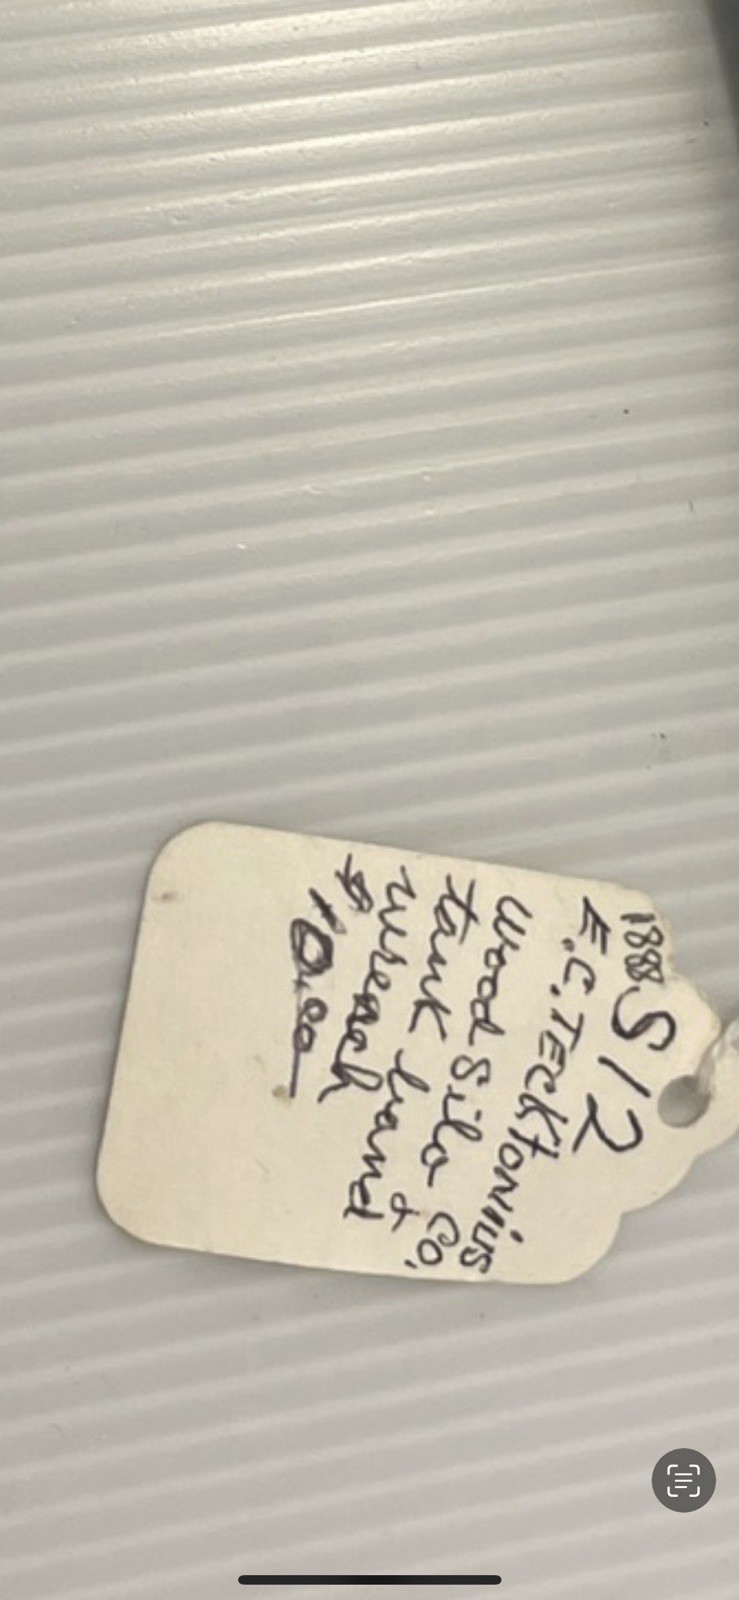 1888. S12
E.C. TECKTONIUS
Wood Silo &
tank band Co.
wrench
$10.00